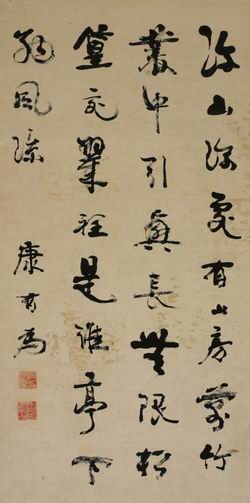 深山深處有山房萬竹
叢中引興長無限松
篁交翠裡是誰亭下
納風涼
康有為